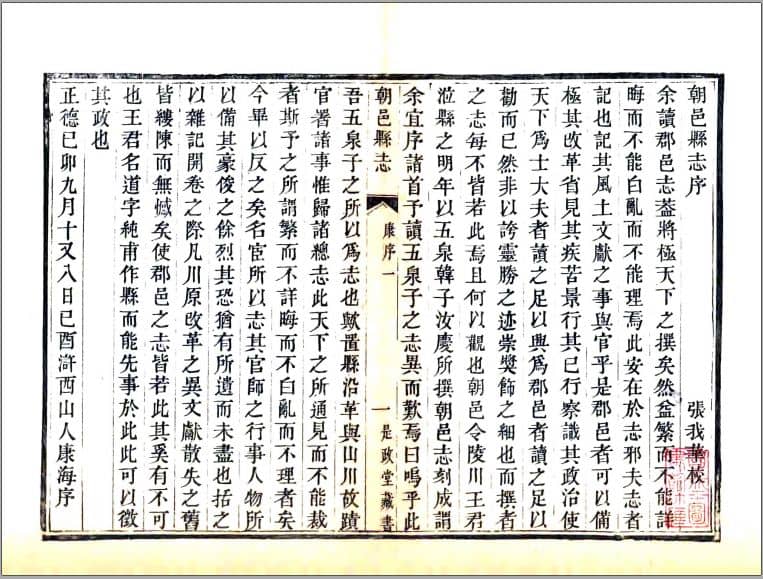 朝邑縣志序
張我華校
余讀郡邑志葢將極天下之撰矣然益繁而不能詳
晦而不能白亂而不能理焉此安在於志邪夫志者
記也記其風土文獻之事與官乎是郡邑者可以備
極其改革省見其疾苦景行其已行察識其政治使
天下爲士大夫者讀之足以興爲郡邑者讀之足以
勸而已然非以誇靈勝之迹崇奬飾之細也而撰者
之志每不皆若此焉且何以觀也朝邑令陵川王君
涖縣之明年以五泉韓子汝慶所撰朝邑志刻成謂
余宜序諸首予讀五泉子之志異而歎焉曰嗚乎此
朝邑縣志
康序一
一
是政堂藏書
吾五泉子之所以爲志也歟置縣沿革與山川故蹟
官署諸事惟歸諸總志此天下之所通見而不能裁
者斯予之所謂繁而不詳晦而不白亂而不理者矣
今畢以反之矣名宦所以志其官師之行事人物所
以備其豪俊之餘烈其恐猶有所遺而未盡也括之
以雜記開卷之際凡川原改革之異文獻散失之舊
皆縷陳而無憾矣使郡邑之志皆若此其奚有不可
也王君名道字純甫作縣而能先事於此此可以徵
其政也
正德己卯九月十又八日己酉滸西山人康海序